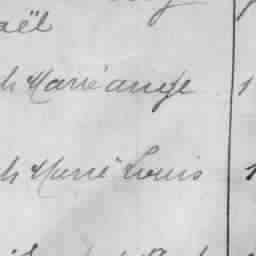 aël
h Marie ange 1
h Marie Louis 1